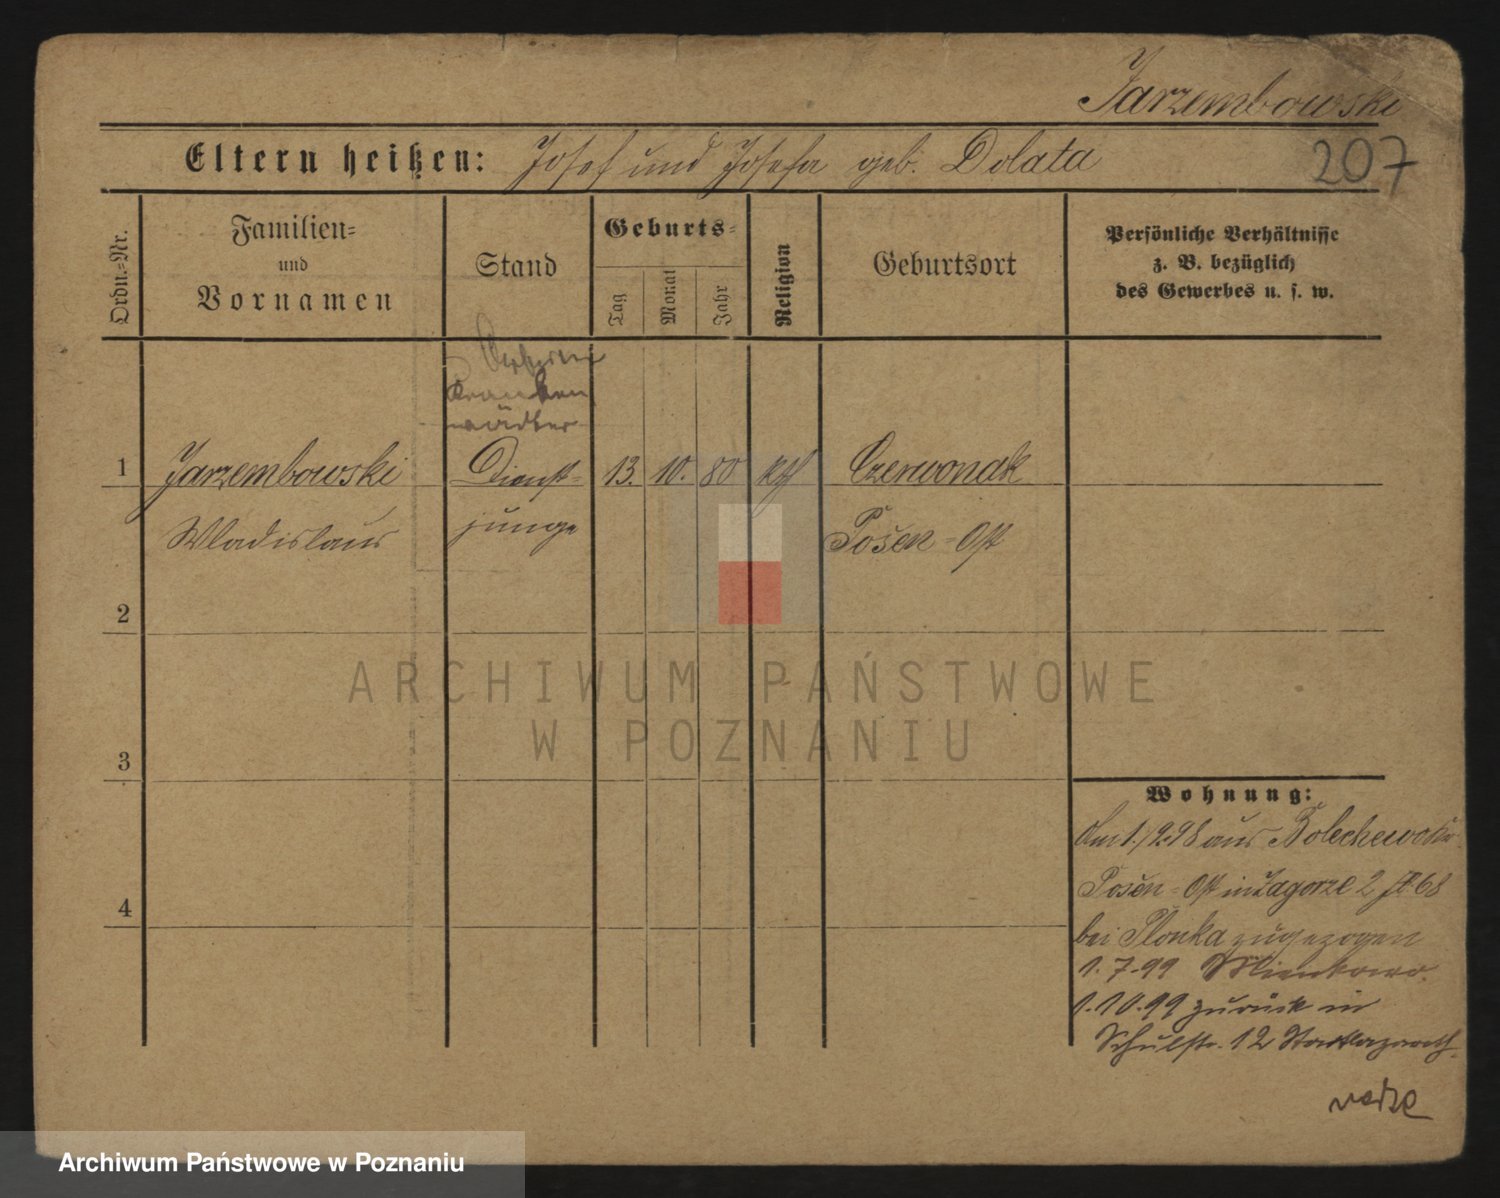 Jarzembowski
Eltern heißen: Josef und Josefa geb. Dolata
207
Ordn.=Nr.
Familien=
und
Vornamen
Stand
Geburts=
Tag
Monat
Jahr
Religion
Geburtsort
Persönliche Verhältnisse
z. B. bezüglich
des Gewerbes u. s. w.
Kranken
wärter
1 Jarzembowski Dienst= 13. 10. 80 kth Czerwonak
Wladislaus junge Posen=Ost
2
3
4
Wohnung:
Am 1./9.98 aus
Posen=Ost in Zagorze 2 68
bei Plonka zugezogen
1.7.99
1.10.99 zurück in
Schulstr. 12 Stadtlazareth.
ARCHIWUM PAŃSTWOWE
W POZNANIU
Archiwum Państwowe w Poznaniu